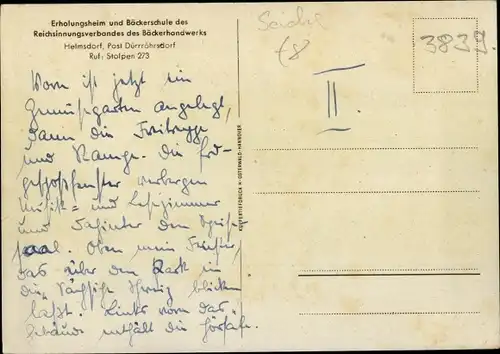 Erholungsheim und Bäckerschule des
Reichsinnungsverbandes des Bäckerhandwerks
Helmsdorf, Post Dürrröhrsdorf
Ruf: Stolpen 273
Vorn ist jetzt ein
Gemüsegarten angelegt,
dann die
und Rampe. Die Erd-
geschoßfenster verbergen
Musik= und Lesezimmer
und dahinter den Speise-
saal. Oben mein Fenster,
das über den Park in
die "Sächsische Schweiz" blicken
läßt. Links vorn das
Gebäude enthält die Hörsäle.
II
3839
KUPFERTIEFDRUCK H. OSTERWALD-HANNOVER